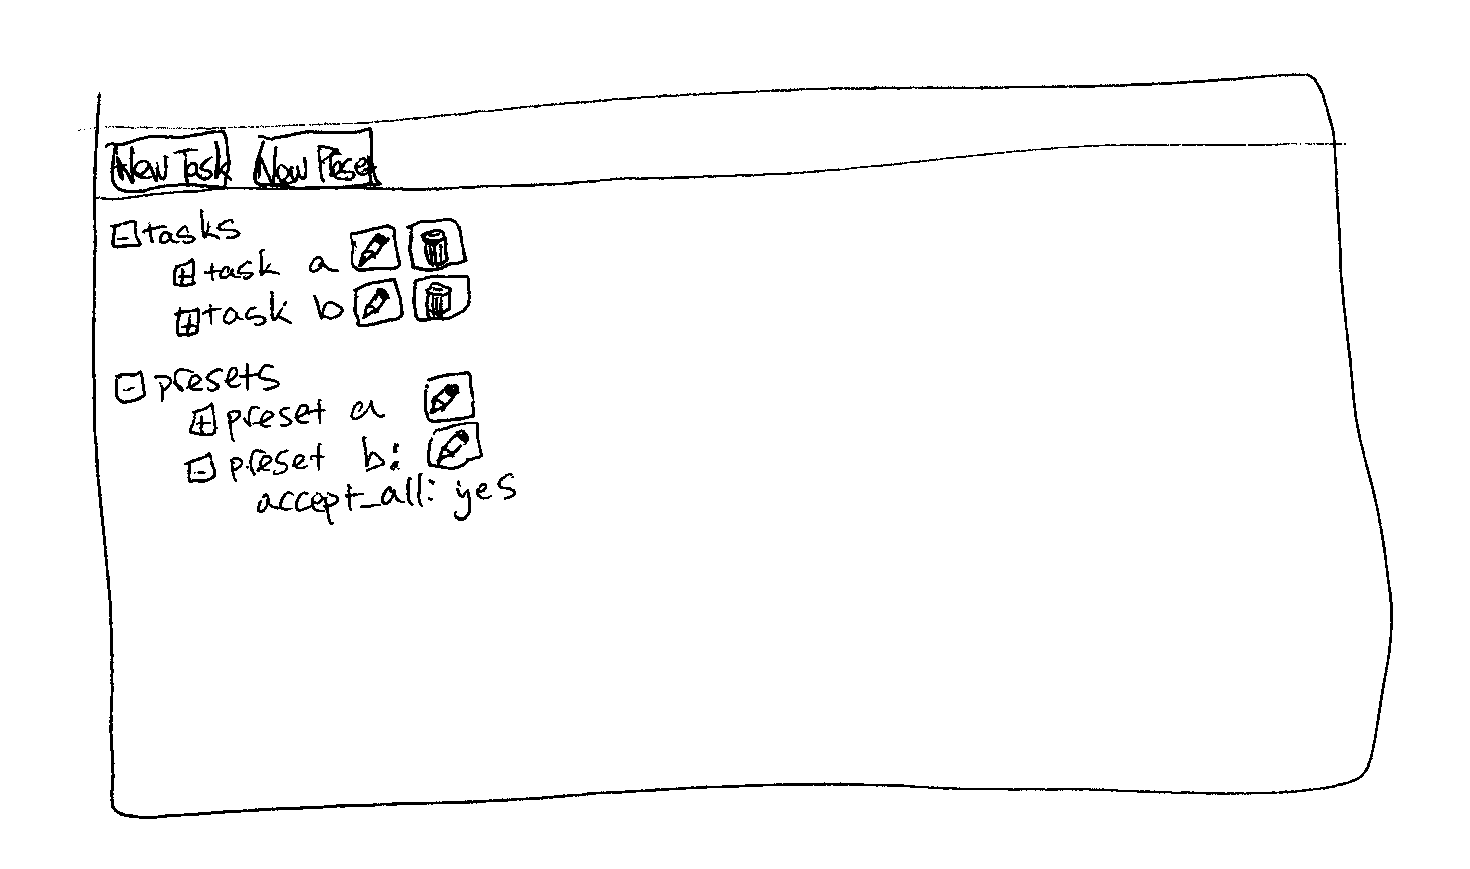 New Task New Preset
tasks
task a
task b
presets
preset a
preset b:
accept_all: yes